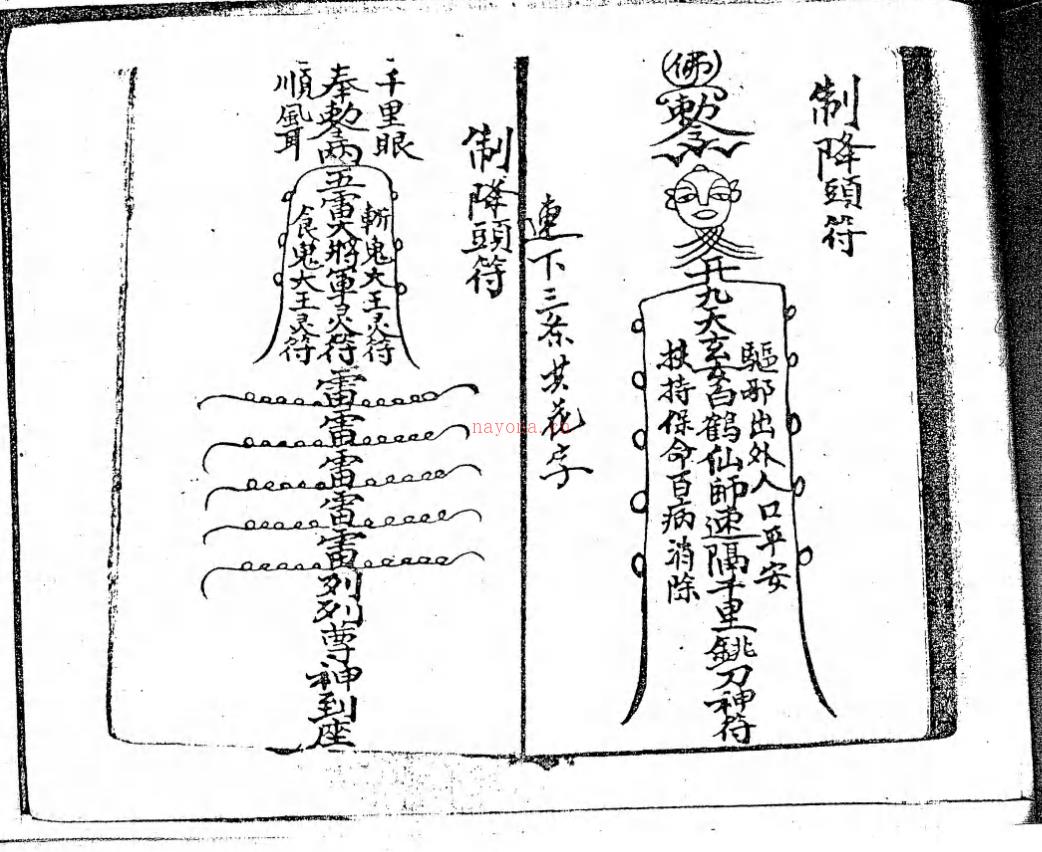 制降頭符
佛
敕令
九天玄女白鶴仙師速隔千里銚刀神符
驅邪出外人口平安
扶持保命百病消除
連下三条共花字
制降頭符
千里眼
奉敕令
順風耳
五雷大將軍灵符
斬鬼大王灵符
食鬼大王灵符
雷雷雷雷雷列列尊神到座
nayona.cn